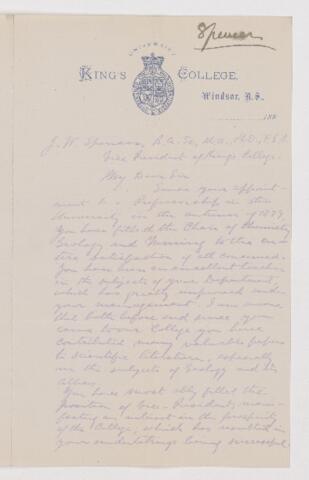 Spencer
UNIVERSITY
KING'S COLLEGE.
Windsor, N.S.
188
J. W. Spencer, B.A.Sc, M.A., Ph.D., F.G.S.
Vice President of King's College.
My Dear Sir
Since your appoint-
ment to a Professorship in this
University in the autumn of 1879,
you have filled the Chair of Chemistry
Geology and Mining to the en-
tire satisfaction of all concerned.
You have been an excellent teacher
in the subjects of your Department,
which has greatly improved under
your management. I am aware
that both before and since you
came to our College you have
contributed many valuable papers
to scientific literature, especially
on the subjects of Geology and its
allies.
You have most ably filled the
position of Vice-President, mani-
festing an interest in the prosperity
of the College, which has resulted in
your undertakings being successful